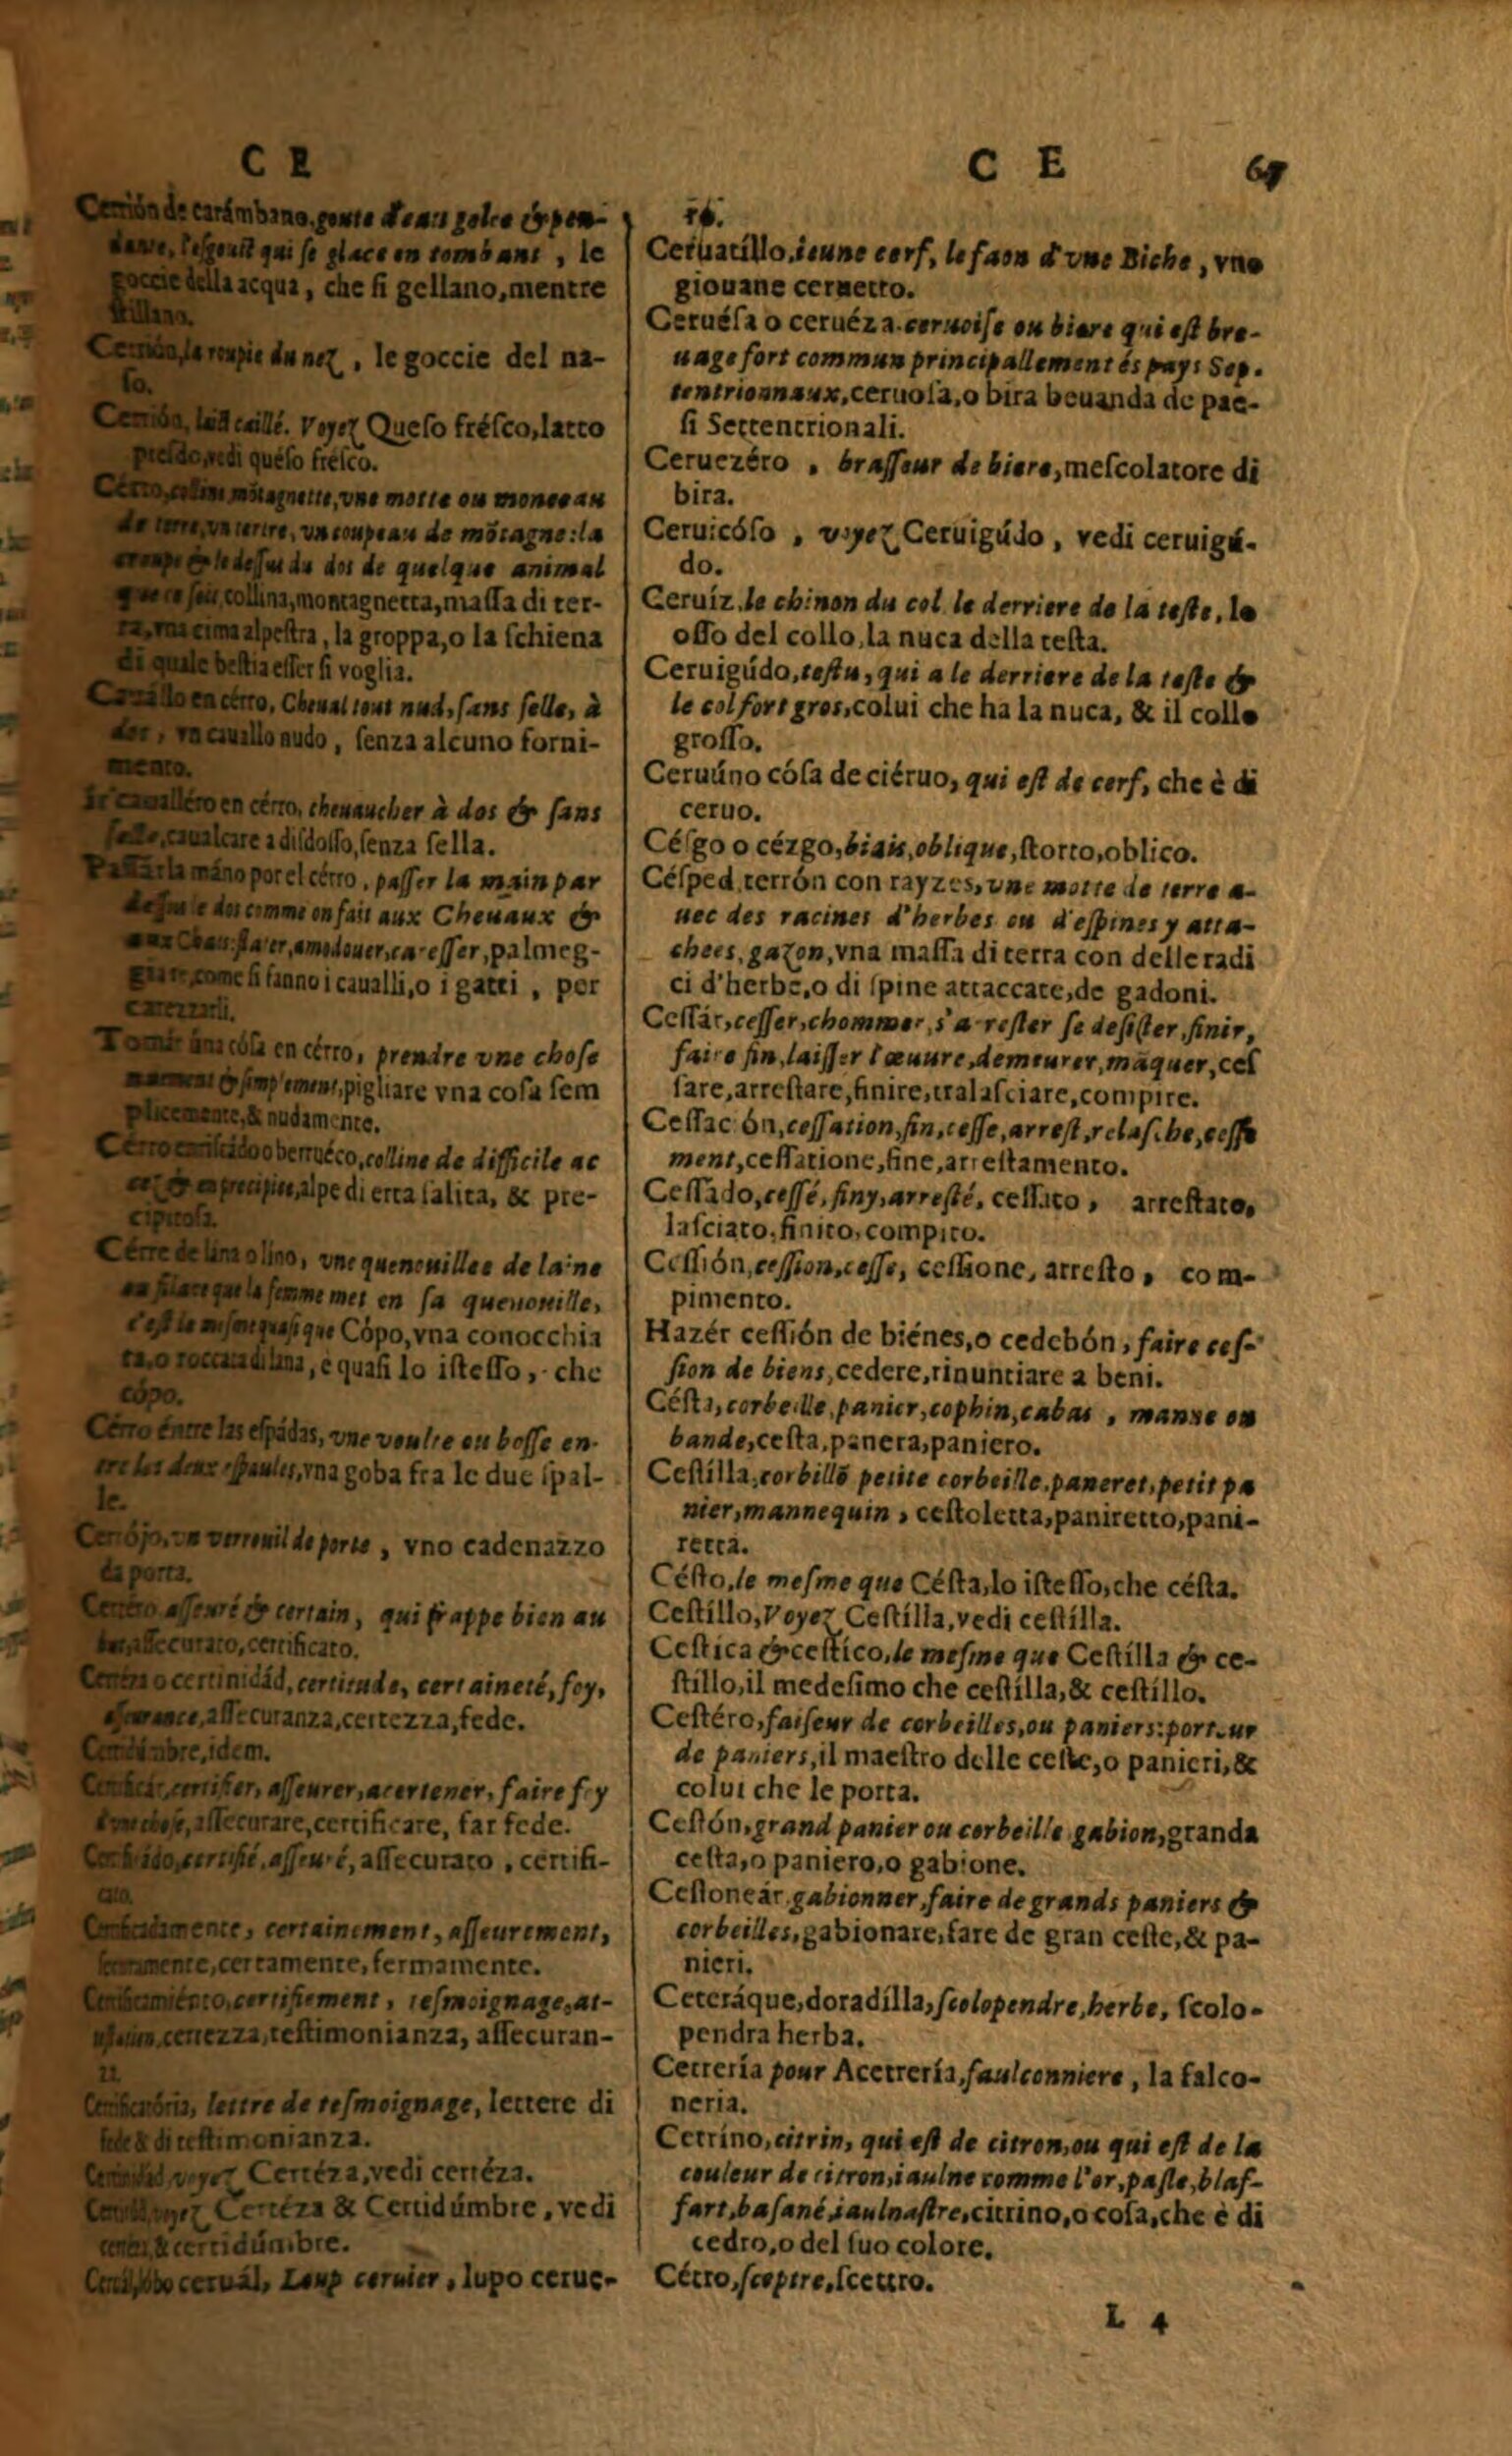 C E
Cerrión de carámbano, goute d'eau gelee & pen-
dante, l'esgoust qui se glace en tombant, le
goccie della acqua, che si gellano, mentre
stillano.
Cerrión, la roupie du nez, le goccie del na-
so.
Cerrión, laict caillé. Voyez Queso frésco, latto
presdo, vedi quéso frésco.
Cérro, coline, mõtagnette, vne motte ou monceau
de terre, vn tertre, vn coupeau de mõtagne: la
croupe & le dessus du dos de quelque animal
que ce soit, collina, montagnetta, massa di ter-
ra, vna cima alpestra, la groppa, o la schiena
di quale bestia esser si voglia.
Caballo en cérro, Cheual tout nud, sans selle, à
dos, vn cauallo nudo, senza alcuno forni-
mento.
Ir cauallero en cérro, cheuaucher à dos & sans
selle, caualcare a disdosso, senza sella.
Passár la máno por el cérro, passer la main par
dessus le dos comme on fait aux Cheuaux &
aux Chats: flater, amadouer, caresser, palmeg-
giare, come si fanno i caualli, o i gatti, per
carezzarli.
Tomár úna cósa en cérro, prendre vne chose
nuement & simplement, pigliare vna cosa sem
plicemente, & nudamente.
Cérro enriscádo o berruéco, colline de difficile ac
cez & en precipice, alpe di erta salita, & pre-
cipitosa.
Cérre de lána o líno, vne quenouillee de laine
ou filace que la femme met en sa quenouille,
c'est le mesme quasi que Cópo, vna conocchia
ta, o roccata di lana, è quasi lo istesso, che
cópo.
Cérro éntre las espádas, vne voulte ou bosse en-
tre les deux espaules, vna goba fra le due spal-
le.
Cerrójo, vn verrouil de porte, vno cadenazzo
da porta.
Certéro asseuré & certain, qui frappe bien au
but, assecurato, certificato.
Certéza o certinidád, certitude, certaineté, foy,
asseurance, assecuranza, certezza, fede.
Certidúmbre, idem.
Certificár, certifier, asseurer, acertener, faire foy
d'vne chose, assecurare, certificare, far fede.
Certificádo, certifié, asseuré, assecurato, certifi-
cato.
Certificadamente, certainement, asseurement,
certamente, fermamente.
Certificamiénto, certifiement, tesmoignage, at-
certezza, testimonianza, assecuran-
za.
Certificatória, lettre de tesmoignage, lettere di
fede & di testimonianza.
Certinidad, voyez Certéza, vedi certéza.
voyez Certéza & Certidúmbre, vedi
certéza, & certidúmbre.
Cervál, lobo ceruál, Loup ceruier, lupo ceruc-
C E 67
ro.
Ceruatíllo, ieune cerf, le faon d'vne Biche, vno
giouane ceruetto.
Ceruésa o ceruéza. ceruoise ou biere qui est bre-
uage fort commun principallement és pays Sep-
tentrionnaux, ceruosa, o bira beuanda de pae-
si Settentrionali.
Ceruezéro, brasseur de biere, mescolatore di
bira.
Ceruicóso, voyez Ceruigúdo, vedi ceruigú-
do.
Ceruíz, le chinon du col le derriere de la teste, lo
osso del collo, la nuca della testa.
Ceruigúdo, testu, qui a le derriere de la teste &
le col fort gros, colui che ha la nuca, & il collo
grosso.
Ceruúno cósa de ciéruo, qui est de cerf, che è di
ceruo.
Césgo o cézgo, biais, oblique, storto, oblico.
Césped, terrón con rayzes, vne motte de terre a-
uec des racines d'herbes ou d'espines y atta-
chees, gazon, vna massa di terra con delle radi
ci d'herbe, o di spine attaccate, de gadoni.
Cessár, cesser, chommer, s'arrester se desister, finir,
faire fin, laisser l'œuure, demeurer, mãquer, ces
sare, arrestare, finire, tralasciare, compire.
Cessación, cessation, fin, cesse, arrest, relasche, cesse
ment, cessatione, fine, arrestamento.
Cessado, cessé, finy, arresté, cessato, arrestato,
lasciato, finito, compito.
Cessión, cession, cesse, cessione, arresto, com-
pimento.
Hazér cessión de biénes, o cedebón, faire ces-
sion de biens, cedere, rinuntiare a beni.
Césta, corbeille, panier, cophin, cabas, manne ou
bande, cesta, panera, paniero.
Cestílla, corbillõ petite corbeille, paneret, petit pa
nier, mannequin, cestoletta, paniretto, pani-
retta.
Césto, le mesme que Césta, lo istesso, che césta.
Cestíllo, Voyez Cestílla, vedi cestílla.
Cestica & cestíco, le mesme que Cestílla & ce-
stillo, il medesimo che cestílla, & cestíllo.
Cestéro, faiseur de corbeilles, ou paniers: porteur
de paniers, il maestro delle ceste, o panieri, &
colui che le porta.
Cestón, grand panier ou corbeille gabion, granda
cesta, o paniero, o gabione.
Cestoneár, gabionner, faire de grands paniers &
corbeilles, gabionare, fare de gran ceste, & pa-
nieri.
Ceteráque, doradílla, scolopendre, herbe, scolo-
pendra herba.
Cetrería pour Acetrería, faulconniere, la falco-
neria.
Cetríno, citrin, qui est de citron, ou qui est de la
couleur de citron, iaulne comme l'or, pasle, blaf-
fart, basané, iaulnastre, citrino, o cosa, che è di
cedro, o del suo colore.
Cétro, sceptre, scettro.
L 4